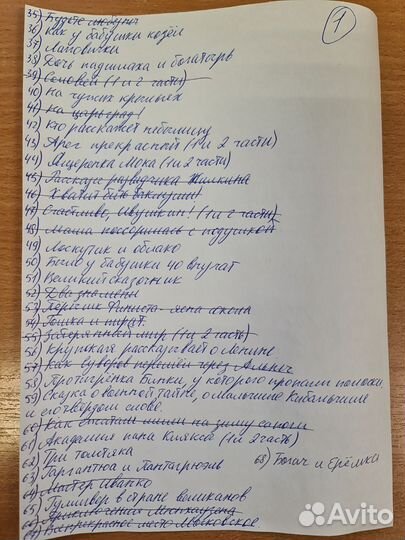 1
35) Будьте
36) Как у бабушки козёл
37) Липовички
38) Дочь падишаха и богатырь
39) Соловей (1 и 2 части)
40) На чужих крыльях
41) На Царьград!
42) Кто расскажет небылицу
43) Арег прекрасный (1 и 2 части)
44) Ящеренка Мока (1 и 2 части)
45) Рассказы разведчика Жилкина
46) Хватит бить баклуши!
47) Счастливо, Ивушкин! (1 и 2 части)
48) Маша поссорилась с подушкой
49) Лоскутик и облако
50) Было у бабушки 40 внучат
51) Великий сказочник
52) Два знамени
53) Пёрышко Финиста - ясна сокола
54) Гошка и пират
55) Затерянный мир (1 и 2 часть)
56) Крупская рассказывает о Ленине
57) Как Суворов перешёл через Альпы
58) Про тигрёнка Бинки, у которого пропали полоски
59) Сказка о военной тайне, о Мальчише Кибальчише
и его твёрдом слове.
60) Как на зиму
61) Академия пана Кляксы (1 и 2 часть)
62) Три толстяка
68) Богач и Ерёмка
63) Гаргантюа и Пантагрюэль
64) Мастер Иванко
65) Гулливер в стране великанов
66) Приключения Мюнхгаузена
67) Наипрекрасное место Московское
Avito